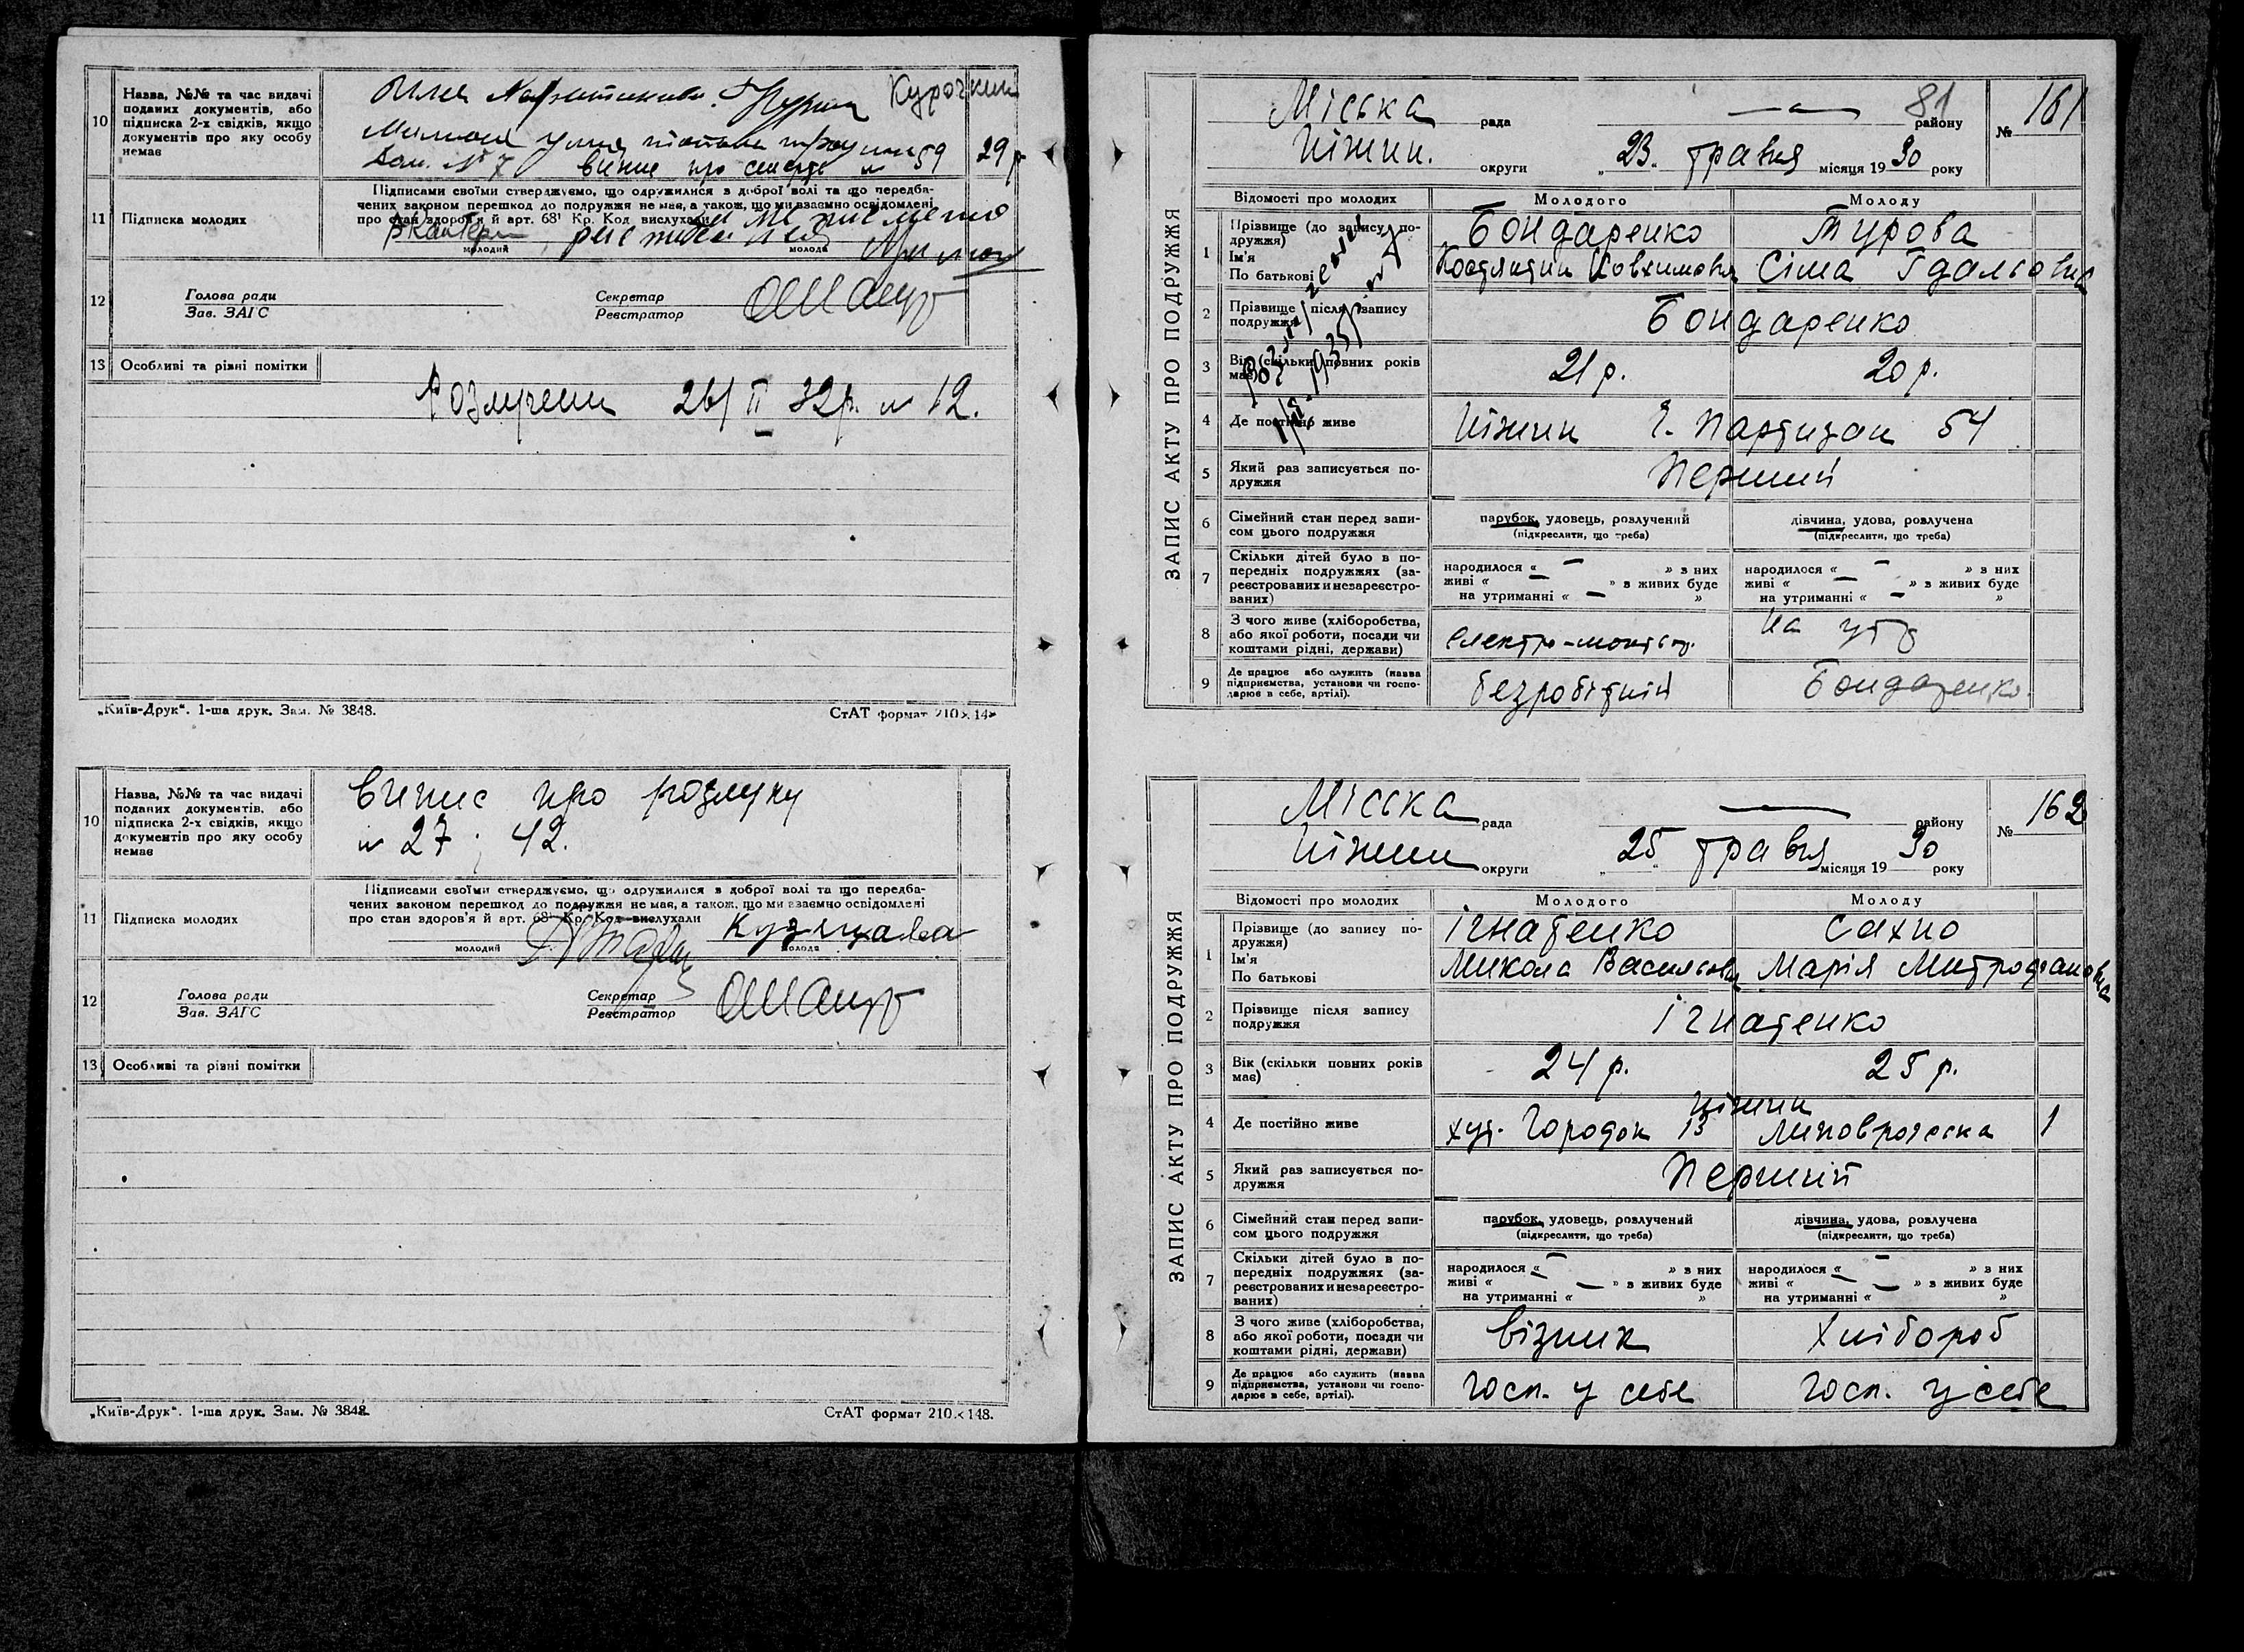 10
Назва, №№ та час видачі
поданих документів, або
підписка 2-х свідків, якщо
документів про яку особу
немає
Курочкин
№ 7 про № 59 29 р
11 Підписка молодих
Підписами своїми стверджуємо, що одружилися з доброї волі та що передба-
чених законом перешкод до подружжя не має, а також, що ми взаємно освідомлені
про стан здоров'я й арт. 68¹ Кр. Код вислухали
молодий молода
12
Голова ради
Зав. ЗАГС
Секретар
Реєстратор
13 Особливі та різні помітки
Розлучени 26/II 32р. № 12.
„Київ-Друк“. 1-ша друк. Зам. № 3848.
СтАТ формат 210×14
10
Назва, №№ та час видачі
поданих документів, або
підписка 2-х свідків, якщо
документів про яку особу
немає
випис про розлуку
№ 27; 42.
11 Підписка молодих
Підписами своїми стверджуємо, що одружилися з доброї волі та що передба-
чених законом перешкод до подружжя не має, а також, що ми взаємно освідомлені
про стан здоров'я й арт. 68¹ Кр. Код вислухали
молодий молода
12
Голова ради
Зав. ЗАГС
Секретар
Реєстратор
13 Особливі та різні помітки
„Київ-Друк“. 1-ша друк. Зам. № 3848.
СтАТ формат 210×148.
ЗАПИС АКТУ ПРО ПОДРУЖЖЯ
Міська рада — району 81 № 161
Ніжин. округи „23. травня місяця 1930 року
Відомості про молодих Молодого Молоду
1
Прізвище (до запису по-
дружжя)
Ім'я
По батькові
Бондаренко Турова
Костянтин Сіма Гдальовна
2
Прізвище після запису
подружжя
Бондаренко
3
Вік (скільки повних років
має)
21 р. 20 р.
4 Де постійно живе
Ніжин Ч. Партизан 54
5
Який раз записується по-
дружжя
Перший
6
Сімейний стан перед запи-
сом цього подружжя
парубок, удовець, розлучений
(підкреслити, що треба)
дівчина, удова, розлучена
(підкреслити, що треба)
7
Скільки дітей було в по-
передніх подружжях (за-
реєстрованих и незареєстро-
ваних)
народилося « — » з них
живі « — » з живих буде
на утриманні « — »
народилося « — » з них
живі « — » з живих буде
на утриманні « — »
8
З чого живе (хліборобства,
або якої роботи, посади чи
коштами рідні, держави)
електро-монтьор. На утр
9
Де працює або служить (назва
підприємства, установи чи госпо-
дарює в себе, артілі).
безробітній Бондаренко.
ЗАПИС АКТУ ПРО ПОДРУЖЖЯ
Міська рада — району № 162
Ніжин округи „25“ травня місяця 1930 року
Відомості про молодих Молодого Молоду
1
Прізвище (до запису по-
дружжя)
Ім'я
По батькові
Ігнатенко Сахно
Микола Васильович Марія Митрофановна
2
Прізвище після запису
подружжя
Ігнатенко
3
Вік (скільки повних років
має)
24 р. 25 р.
4 Де постійно живе
хут. Городок 13 Ніжин 1
5
Який раз записується по-
дружжя
Перший
6
Сімейний стан перед запи-
сом цього подружжя
парубок, удовець, розлучений
(підкреслити, що треба)
дівчина, удова, розлучена
(підкреслити, що треба)
7
Скільки дітей було в по-
передніх подружжях (за-
реєстрованих и незареєстро-
ваних)
народилося « — » з них
живі « — » з живих буде
на утриманні « »
народилося « — » з них
живі « — » з живих буде
на утриманні « »
8
З чого живе (хліборобства,
або якої роботи, посади чи
коштами рідні, держави)
візник хлібороб
9
Де працює або служить (назва
підприємства, установи чи госпо-
дарює в себе, артілі).
госп. у себе госп. у себе